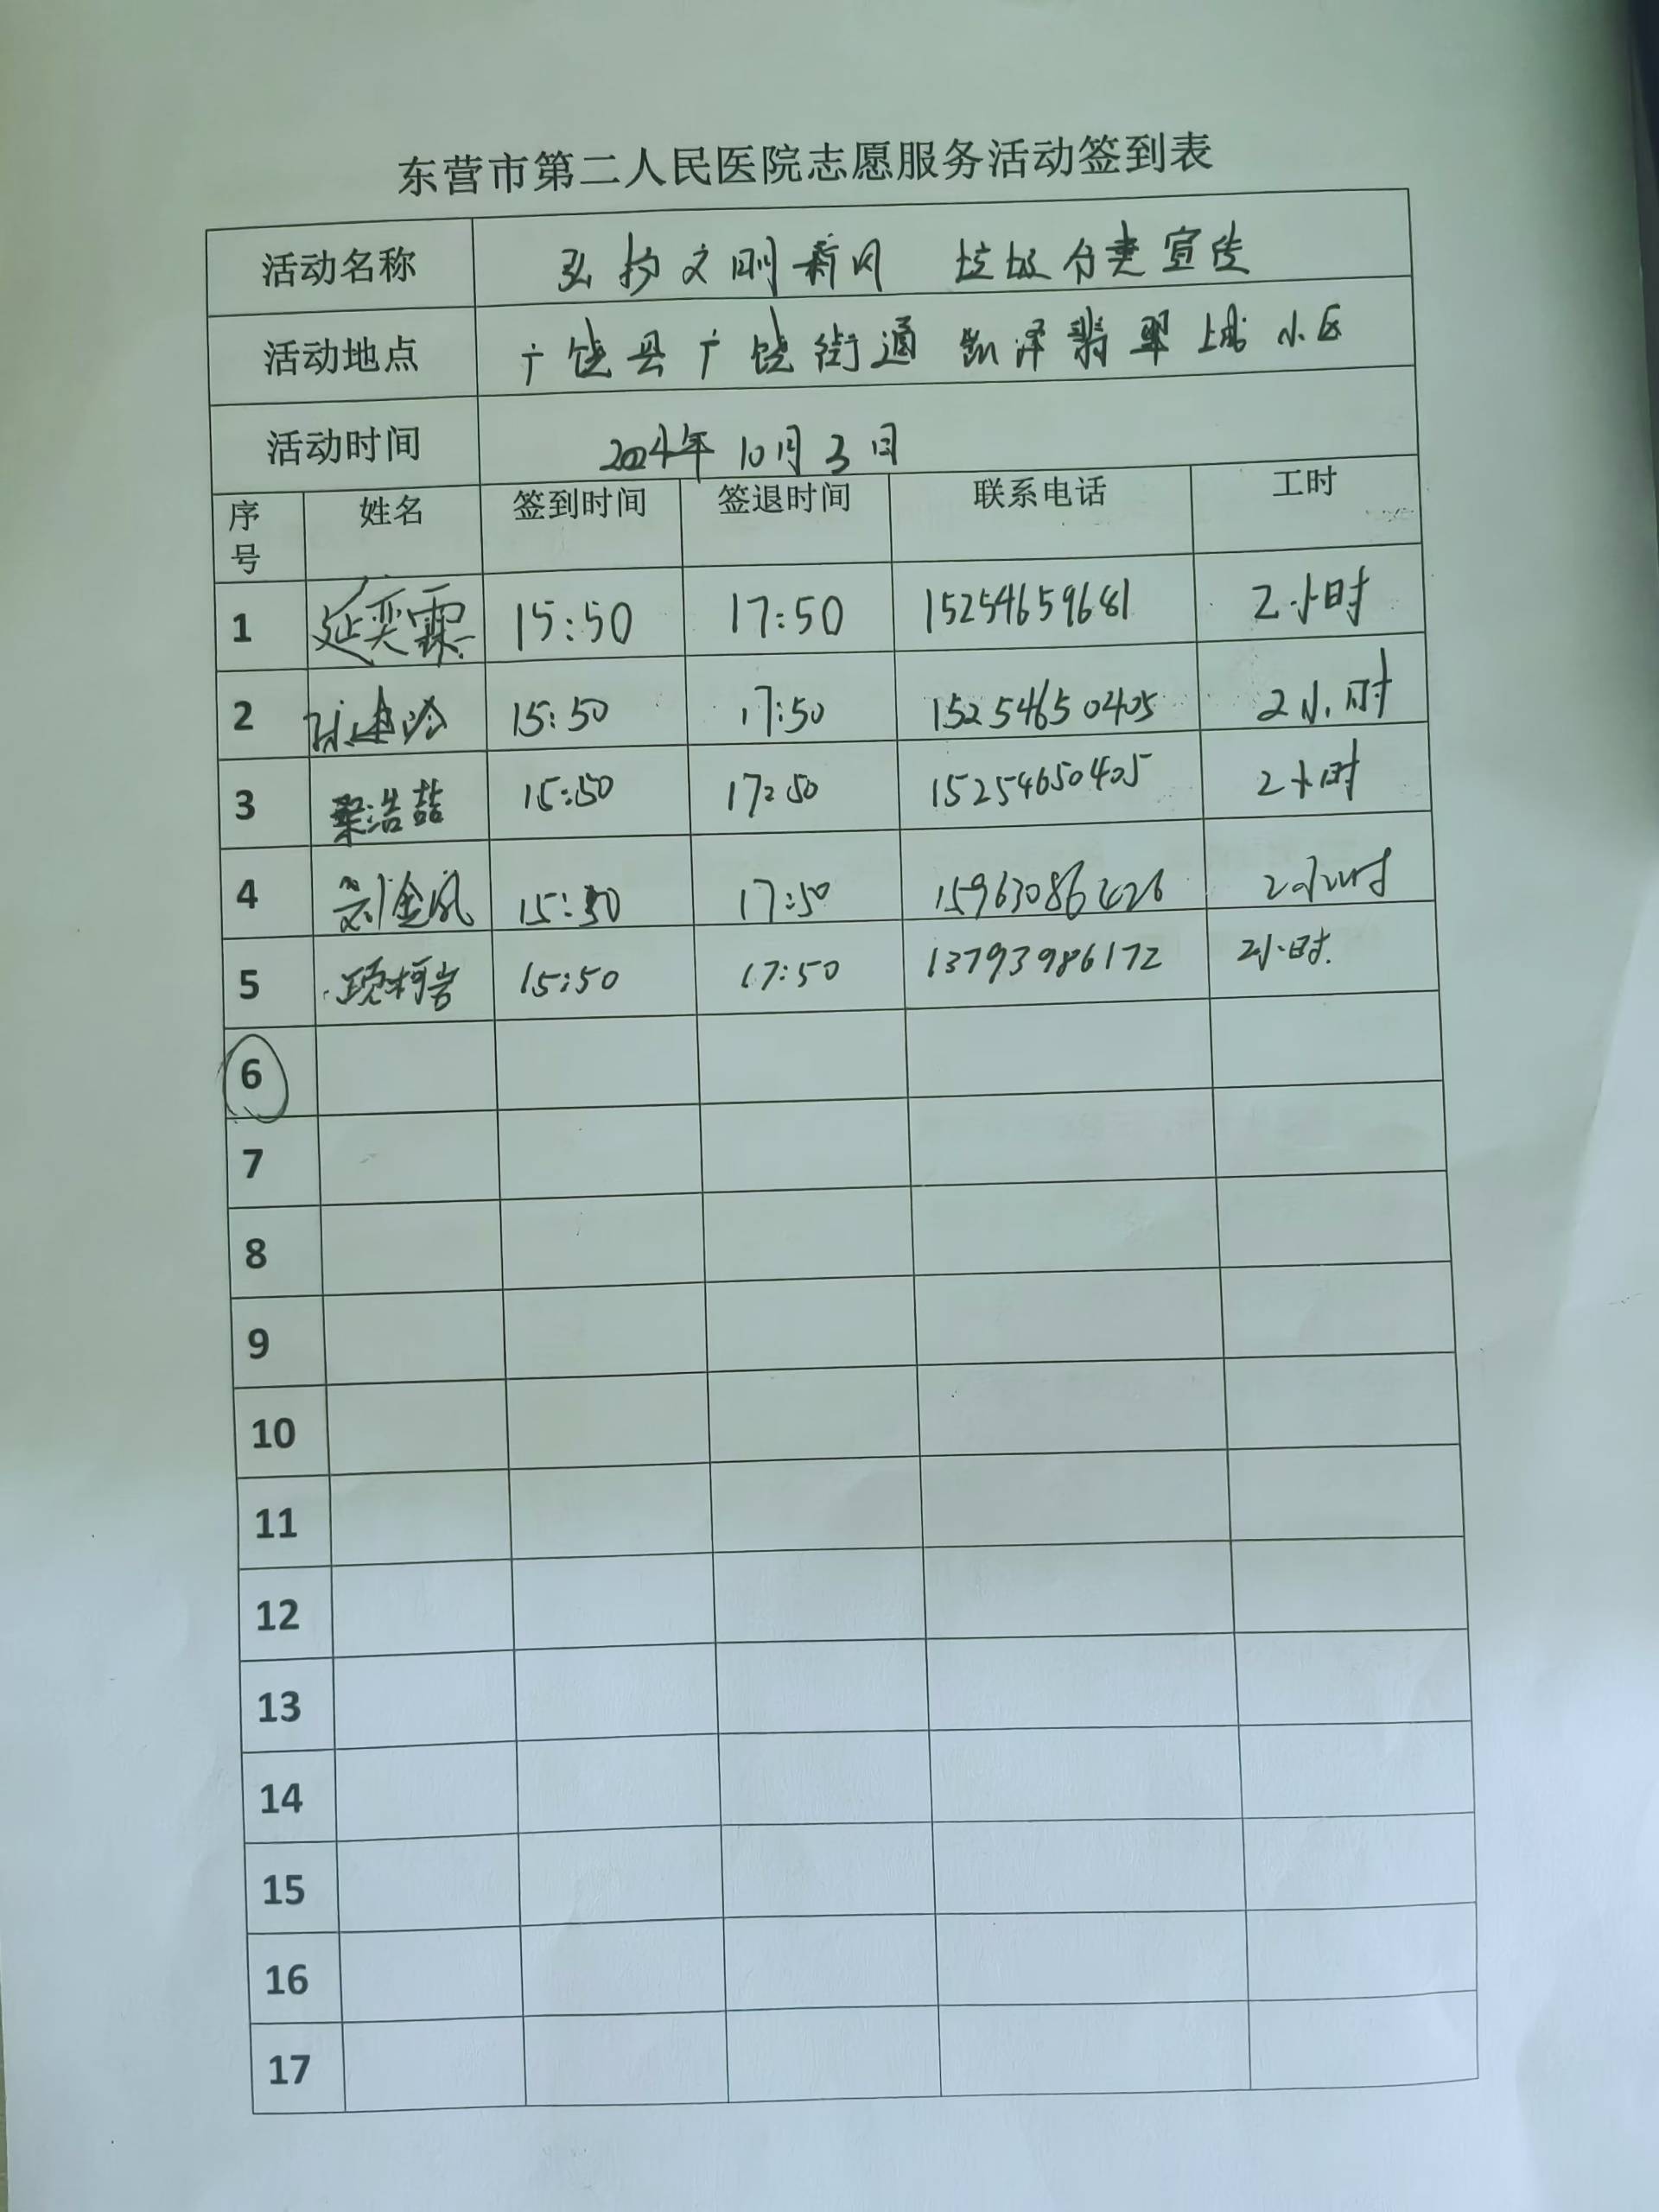 东营市第二人民医院志愿服务活动签到表
活动名称 弘扬文明新风 垃圾分类宣传
活动地点 广饶县广饶街道 凯泽翡翠城小区
活动时间 2024年10月3日
序号 姓名 签到时间 签退时间 联系电话 工时
1 延奕霖 15:50 17:50 15254659681 2小时
2 15:50 17:50 15254650405 2小时
3 梁浩喆 15:50 17:50 15254650405 2小时
4 刘金凤 15:50 17:50 2小时
5 15:50 17:50 13793986172 2小时.
6
7
8
9
10
11
12
13
14
15
16
17